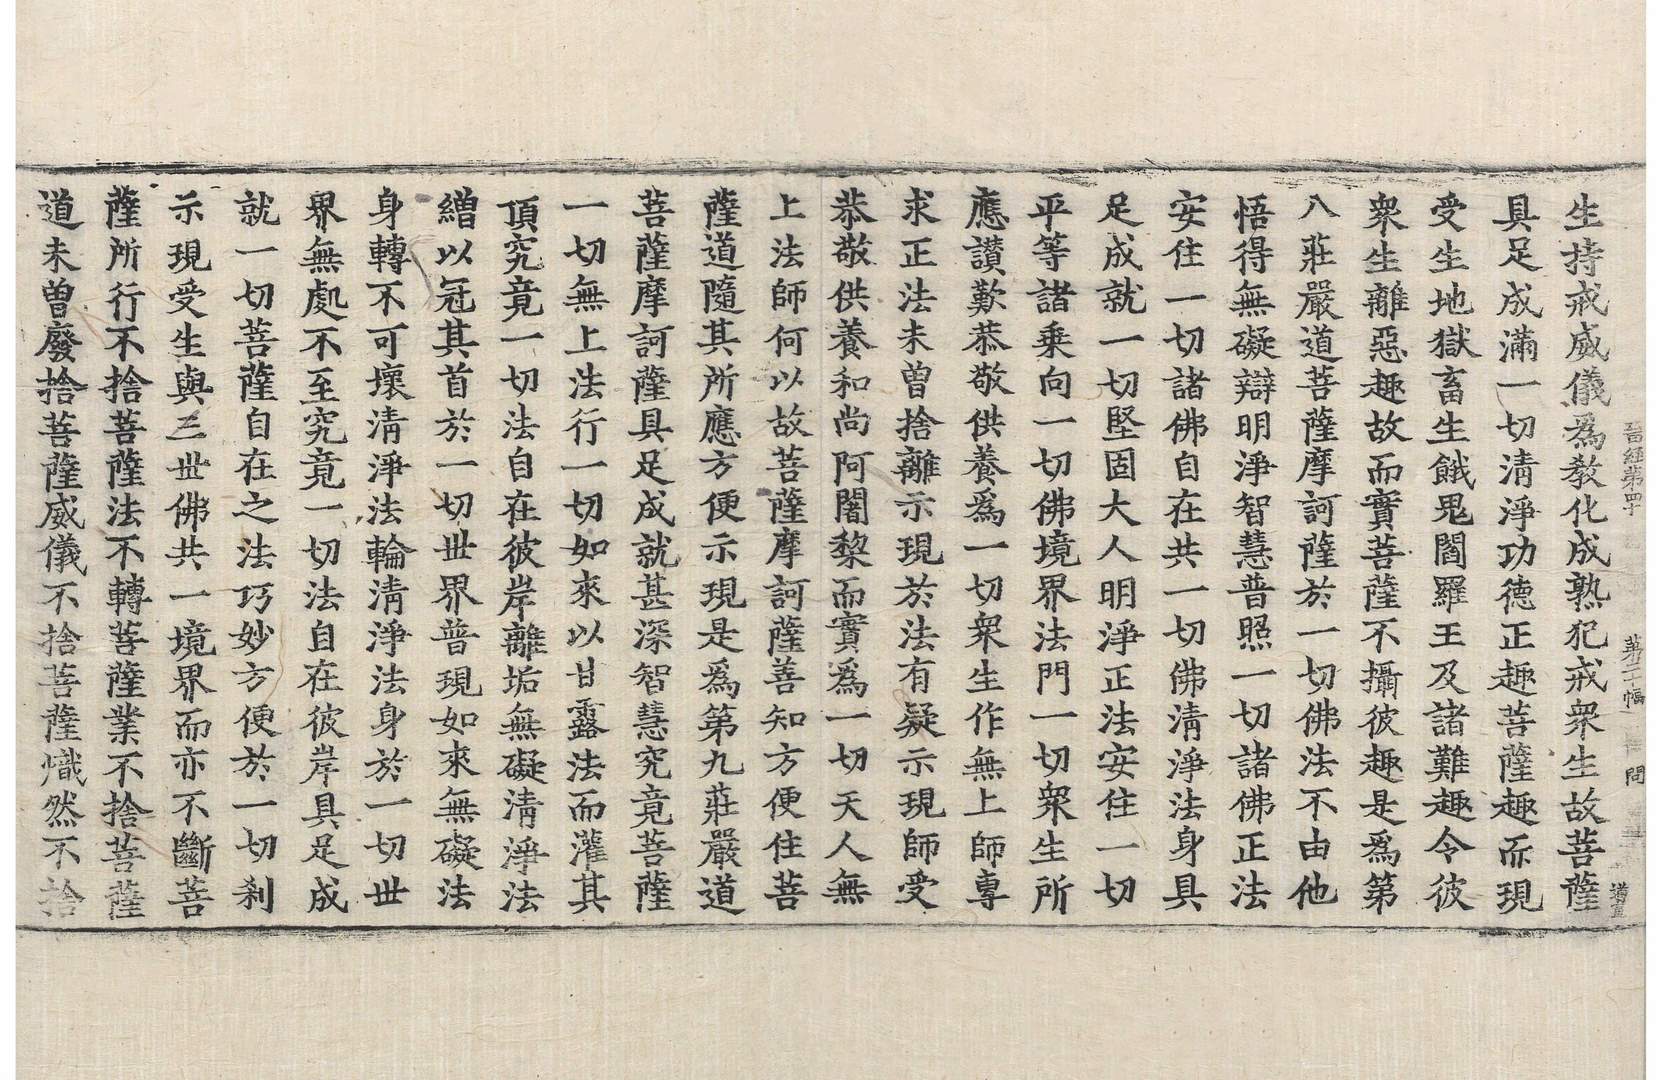 晉經第四十 第二十幅 問 道直
生持戒威儀爲教化成熟犯戒衆生故菩薩
具足成滿一切清淨功德正趣菩薩趣而現
受生地獄畜生餓鬼閻羅王及諸難趣令彼
衆生離惡趣故而實菩薩不攝彼趣是爲第
八莊嚴道菩薩摩訶薩於一切佛法不由他
悟得無礙辯明淨智慧普照一切諸佛正法
安住一切諸佛自在共一切佛清淨法身具
足成就一切堅固大人明淨正法安住一切
平等諸乘向一切佛境界法門一切衆生所
應讚歎恭敬供養爲一切衆生作無上師專
求正法未曾捨離示現於法有疑示現師受
恭敬供養和尚阿闍棃而實爲一切天人無
上法師何以故菩薩摩訶薩善知方便住菩
薩道隨其所應方便示現是爲第九莊嚴道
菩薩摩訶薩具足成就甚深智慧究竟菩薩
一切無上法行一切如來以甘露法而灌其
頂究竟一切法自在彼岸離垢無礙清淨法
繒以冠其首於一切世界普現如來無礙法
身轉不可壞清淨法輪清淨法身於一切世
界無處不至究竟一切法自在彼岸具足成
就一切菩薩自在之法巧妙方便於一切刹
示現受生與三世佛共一境界而亦不斷菩
薩所行不捨菩薩法不轉菩薩業不捨菩薩
道未曾廢捨菩薩威儀不捨菩薩熾然不捨